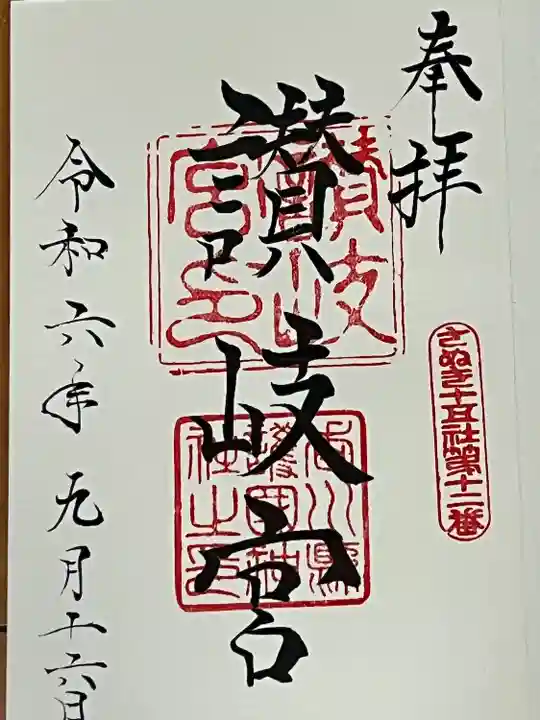 奉拝
さぬき十五社第十二番
讃岐宮
讃岐宮印
香川縣護国神社之印
令和六年九月十六日